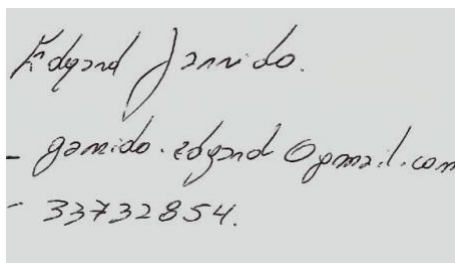 Edgard Garrido.
- garrido.edgard@gmail.com
- 33732854.